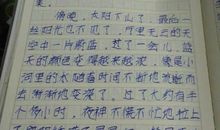 集
傍晚，太阳下山了，最后一
丝阳光也不见了，万里无云的天
空中一片蔚蓝，过了一会儿，蓝
天的颜色变得越来越浓，像是小
河里的水随着时间不断地流逝而
去渐渐地变深了。过了大约有半
个多小时，夜神不慌不忙地拉上